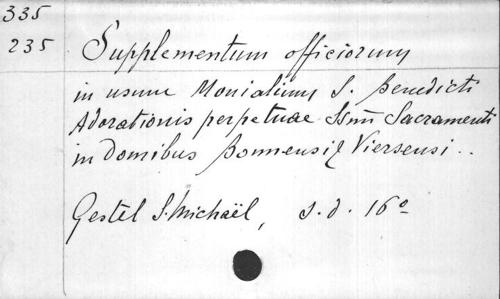 335
235
Supplementum officiorum
in usum Monialium S. Benedicti
Adorationis perpetuae Ssmi Sacramenti
in domibus Bonnensi & Viersensi ..
Gestel S. Michaël, s. d. 16º